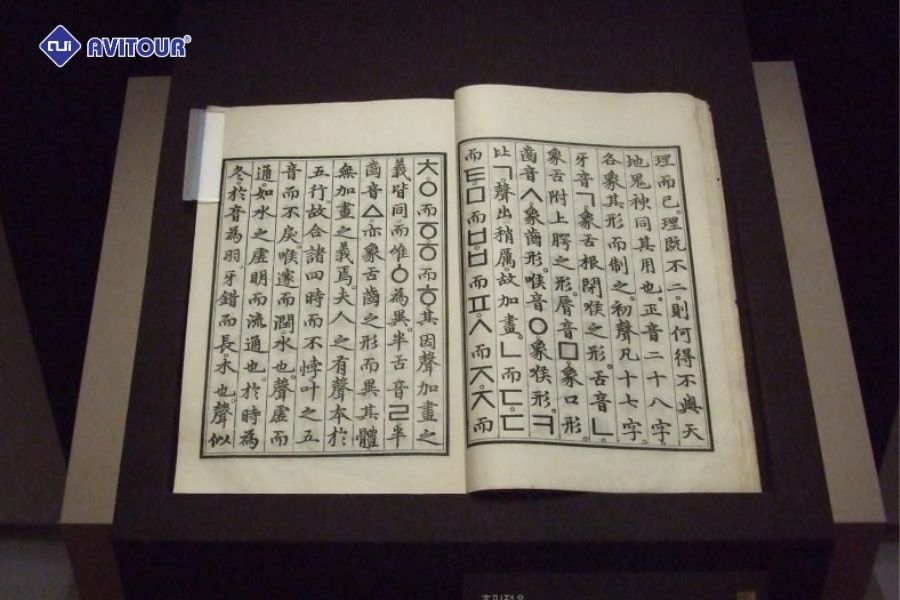 AVITOUR®
理而已。理既不二。則何得不與天
地鬼神同其用也。正音二十八字。
各象其形而制之。初聲凡十七字。
牙音ㄱ。象舌根閉喉之形。舌音ㄴ。
象舌附上腭之形。脣音ㅁ。象口形。
齒音ㅅ。象齒形。喉音ㅇ。象喉形。ㅋ
比ㄱ。聲出稍厲。故加畫。ㄴ而ㄷ。ㄷ
而ㅌ。ㅁ而ㅂ。ㅂ而ㅍ。ㅅ而ㅈ。ㅈ而
ㅊ。ㅇ而ㆆ。ㆆ而ㅎ。其因聲加畫之
義皆同。而唯ㆁ為異。半舌音ㄹ。半
齒音ㅿ。亦象舌齒之形而異其體。
無加畫之義焉。夫人之有聲本於
五行。故合諸四時而不悖。叶之五
音而不戾。喉邃而潤。水也。聲虛而
通。如水之虛明而流通也。於時為
冬。於音為羽。牙錯而長。木也。聲似